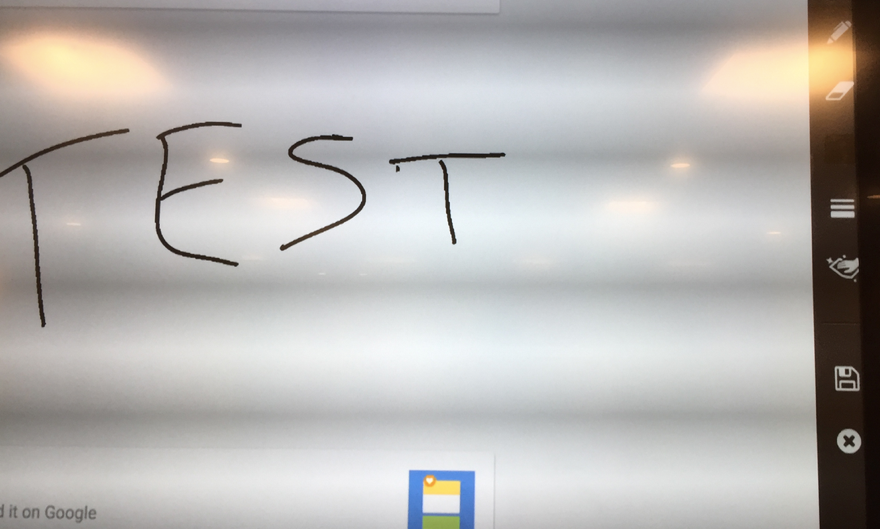 TEST
it on Google